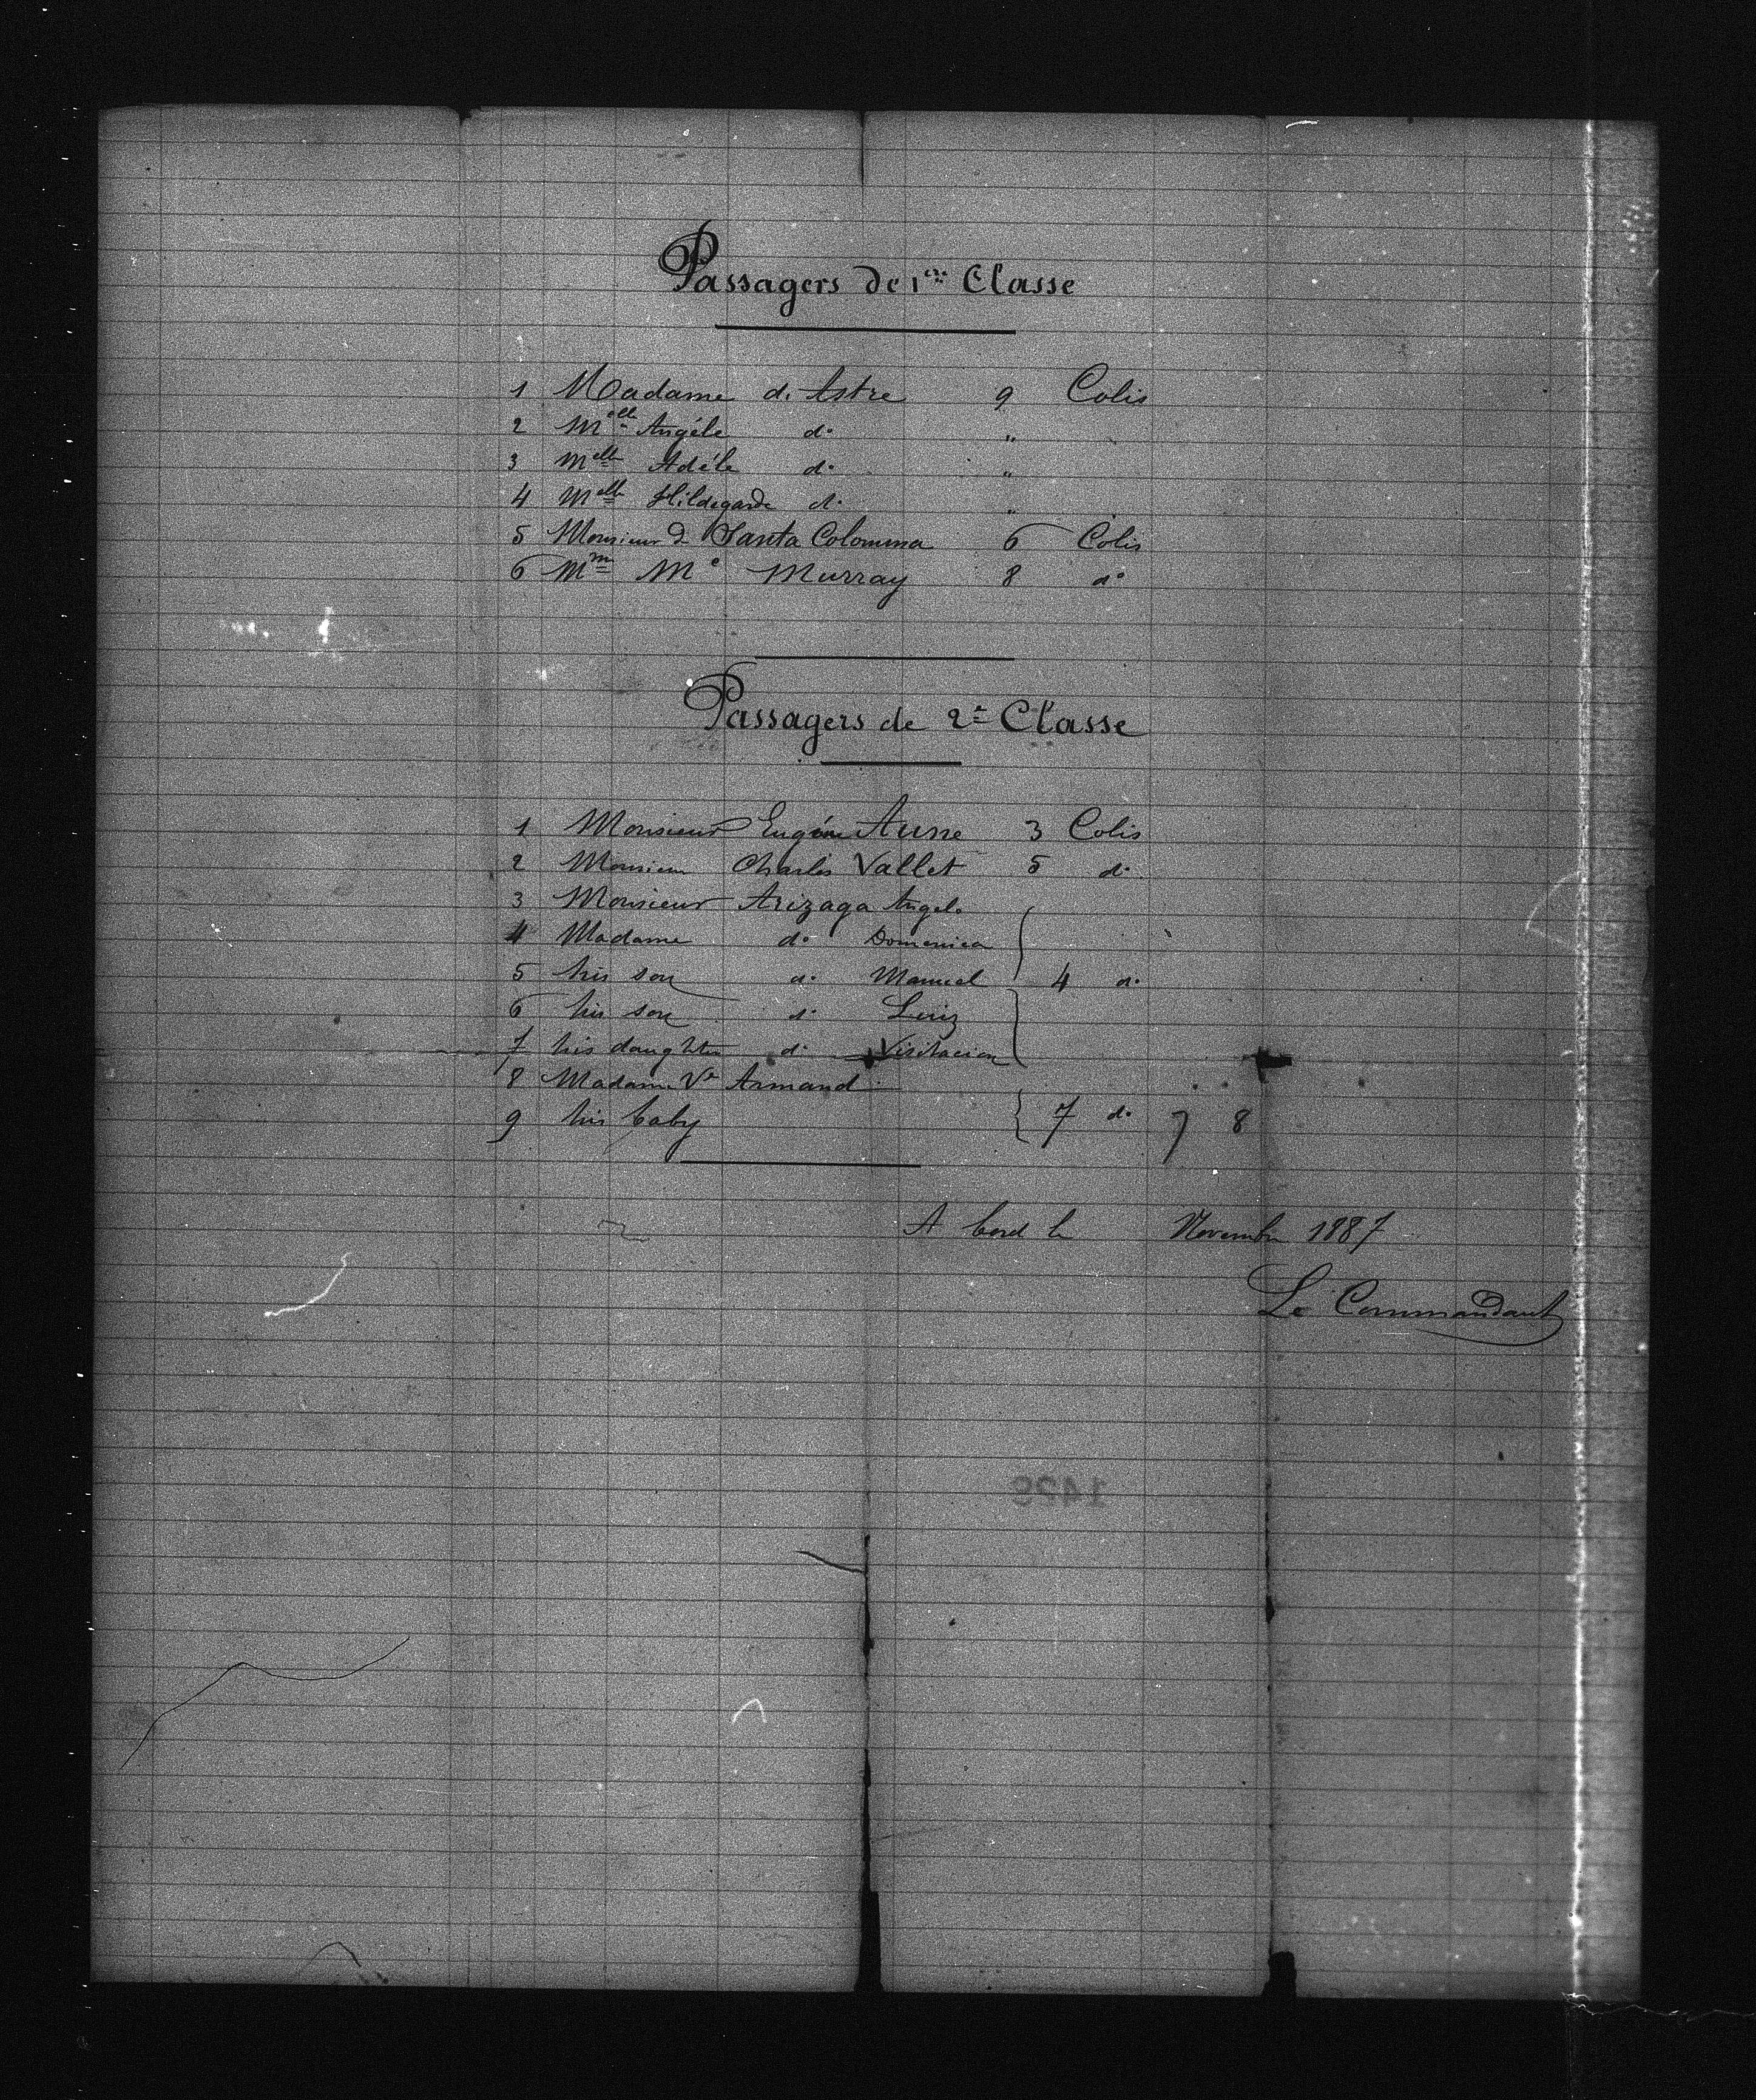 Passagers de 1ère Classe
1 Madame d'Astre 9 Colis
2 Melle Angéle do "
3 Melle Adéle do "
4 Melle Hildegarde do "
5 Monsieur de Santa Colomma 6 Colis
6 Mm Mc Murray 8 do
Passagers de 2e Classe
1 Monsieur Eugène Aune 3 Colis
2 Monsieur Charles Vallet 5 do
3 Monsieur Arizaga Angelo
4 Madame do Domenica
5 his son do Manuel 4 do
6 his son do Luiz
7 his daughter do Visitacion
8 Madame Ve Armand
9 his baby 7 do 7 8
A bord le Novembre 1887
Le Commandant